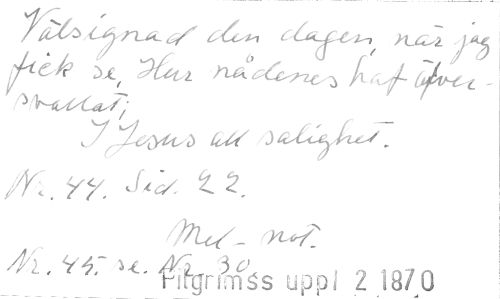 Välsignad den dagen, när jag
fick se, Hur nådenes haf öfver-
svallat;
I Jesus all salighet.
Nr. 44. Sid. 22.
Mel- not.
Nr. 45. se. Nr. 30.
Pilgrimss uppl 2 1870